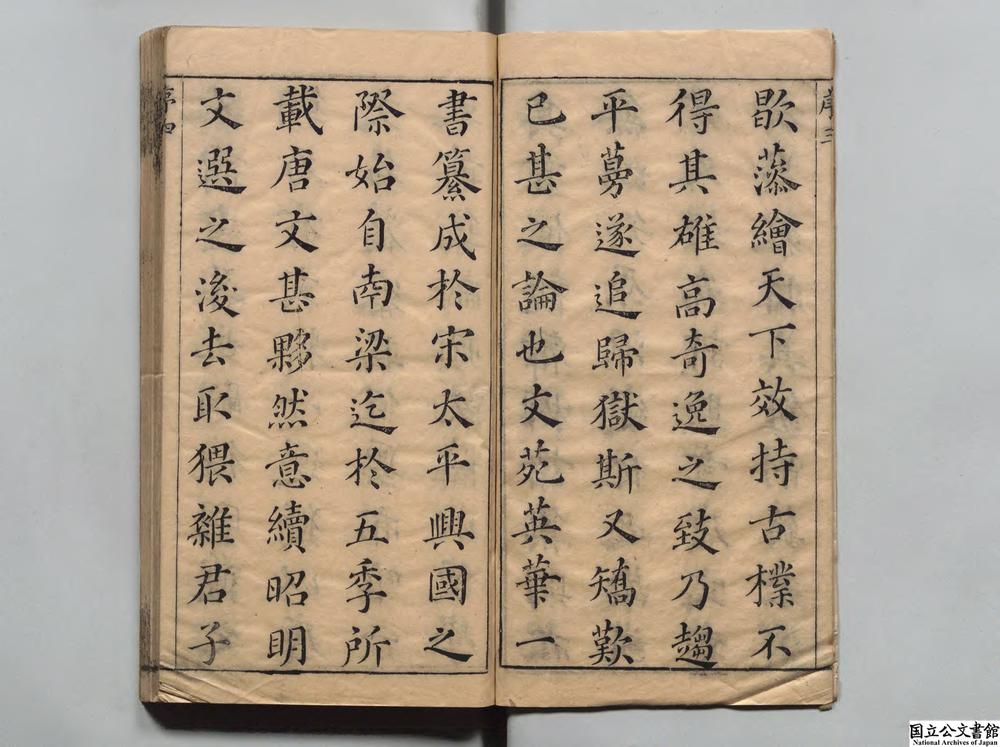 序三
歇藻繪天下效持古樸不
得其雄高奇逸之致乃趨
平蔓遂追歸獄斯又矯歎
已甚之論也文苑英華一
書纂成於宋太平興國之
際始自南梁迄於五季所
載唐文甚夥然意續昭明
文選之後去取猥雜君子
序四
国立公文書館
National Archives of Japan